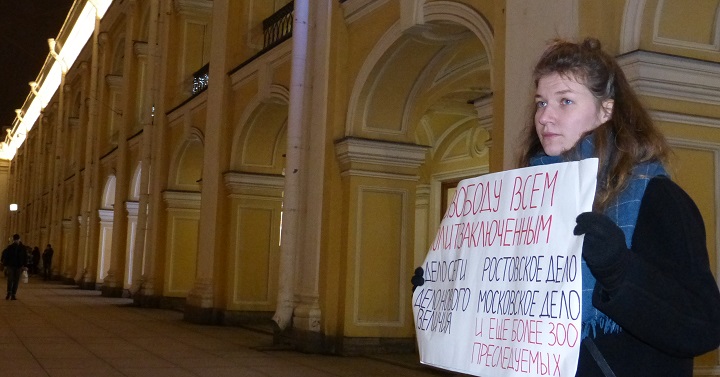 СВОБОДУ ВСЕМ
ПОЛИТЗАКЛЮЧЕННЫМ
ДЕЛО СЕТИ
ДЕЛО НОВОГО
ВЕЛИЧИЯ
РОСТОВСКОЕ ДЕЛО
МОСКОВСКОЕ ДЕЛО
И ЕЩЕ БОЛЕЕ 300
ПРЕСЛЕДУЕМЫХ